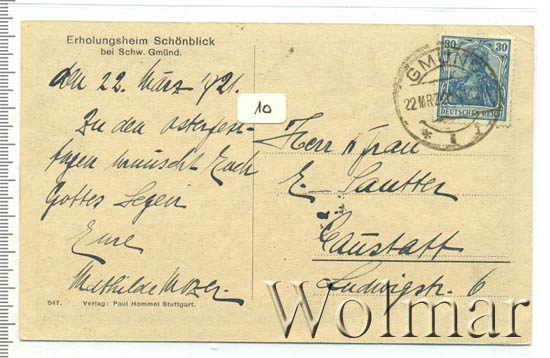 Erholungsheim Schönblick
bei Schw. Gmünd.
den 22. März 1921.
Zu den Osterfest-
tagen wünscht Euch
Gottes Segen
Eure
Mathilde Mozer.
547. Verlag: Paul Hommel Stuttgart.
10
Herr u Frau
E. Sautter
Canstatt
Ludwigstr. 6
GMÜND
22 MRZ
30 30
DEUTSCHES REICH
Wolmar